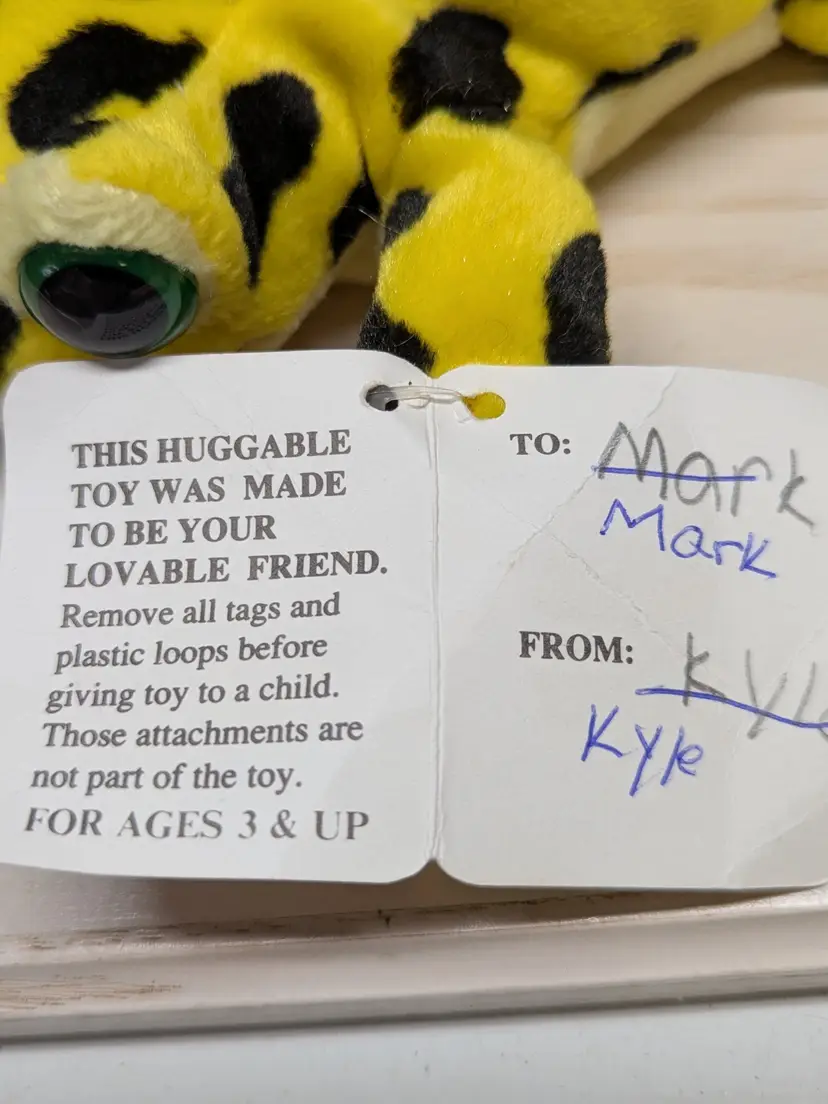 THIS HUGGABLE
TOY WAS MADE
TO BE YOUR
LOVABLE FRIEND.
Remove all tags and
plastic loops before
giving toy to a child.
Those attachments are
not part of the toy.
FOR AGES 3 & UP
TO: Mark
Mark
FROM: Kyle
Kyle